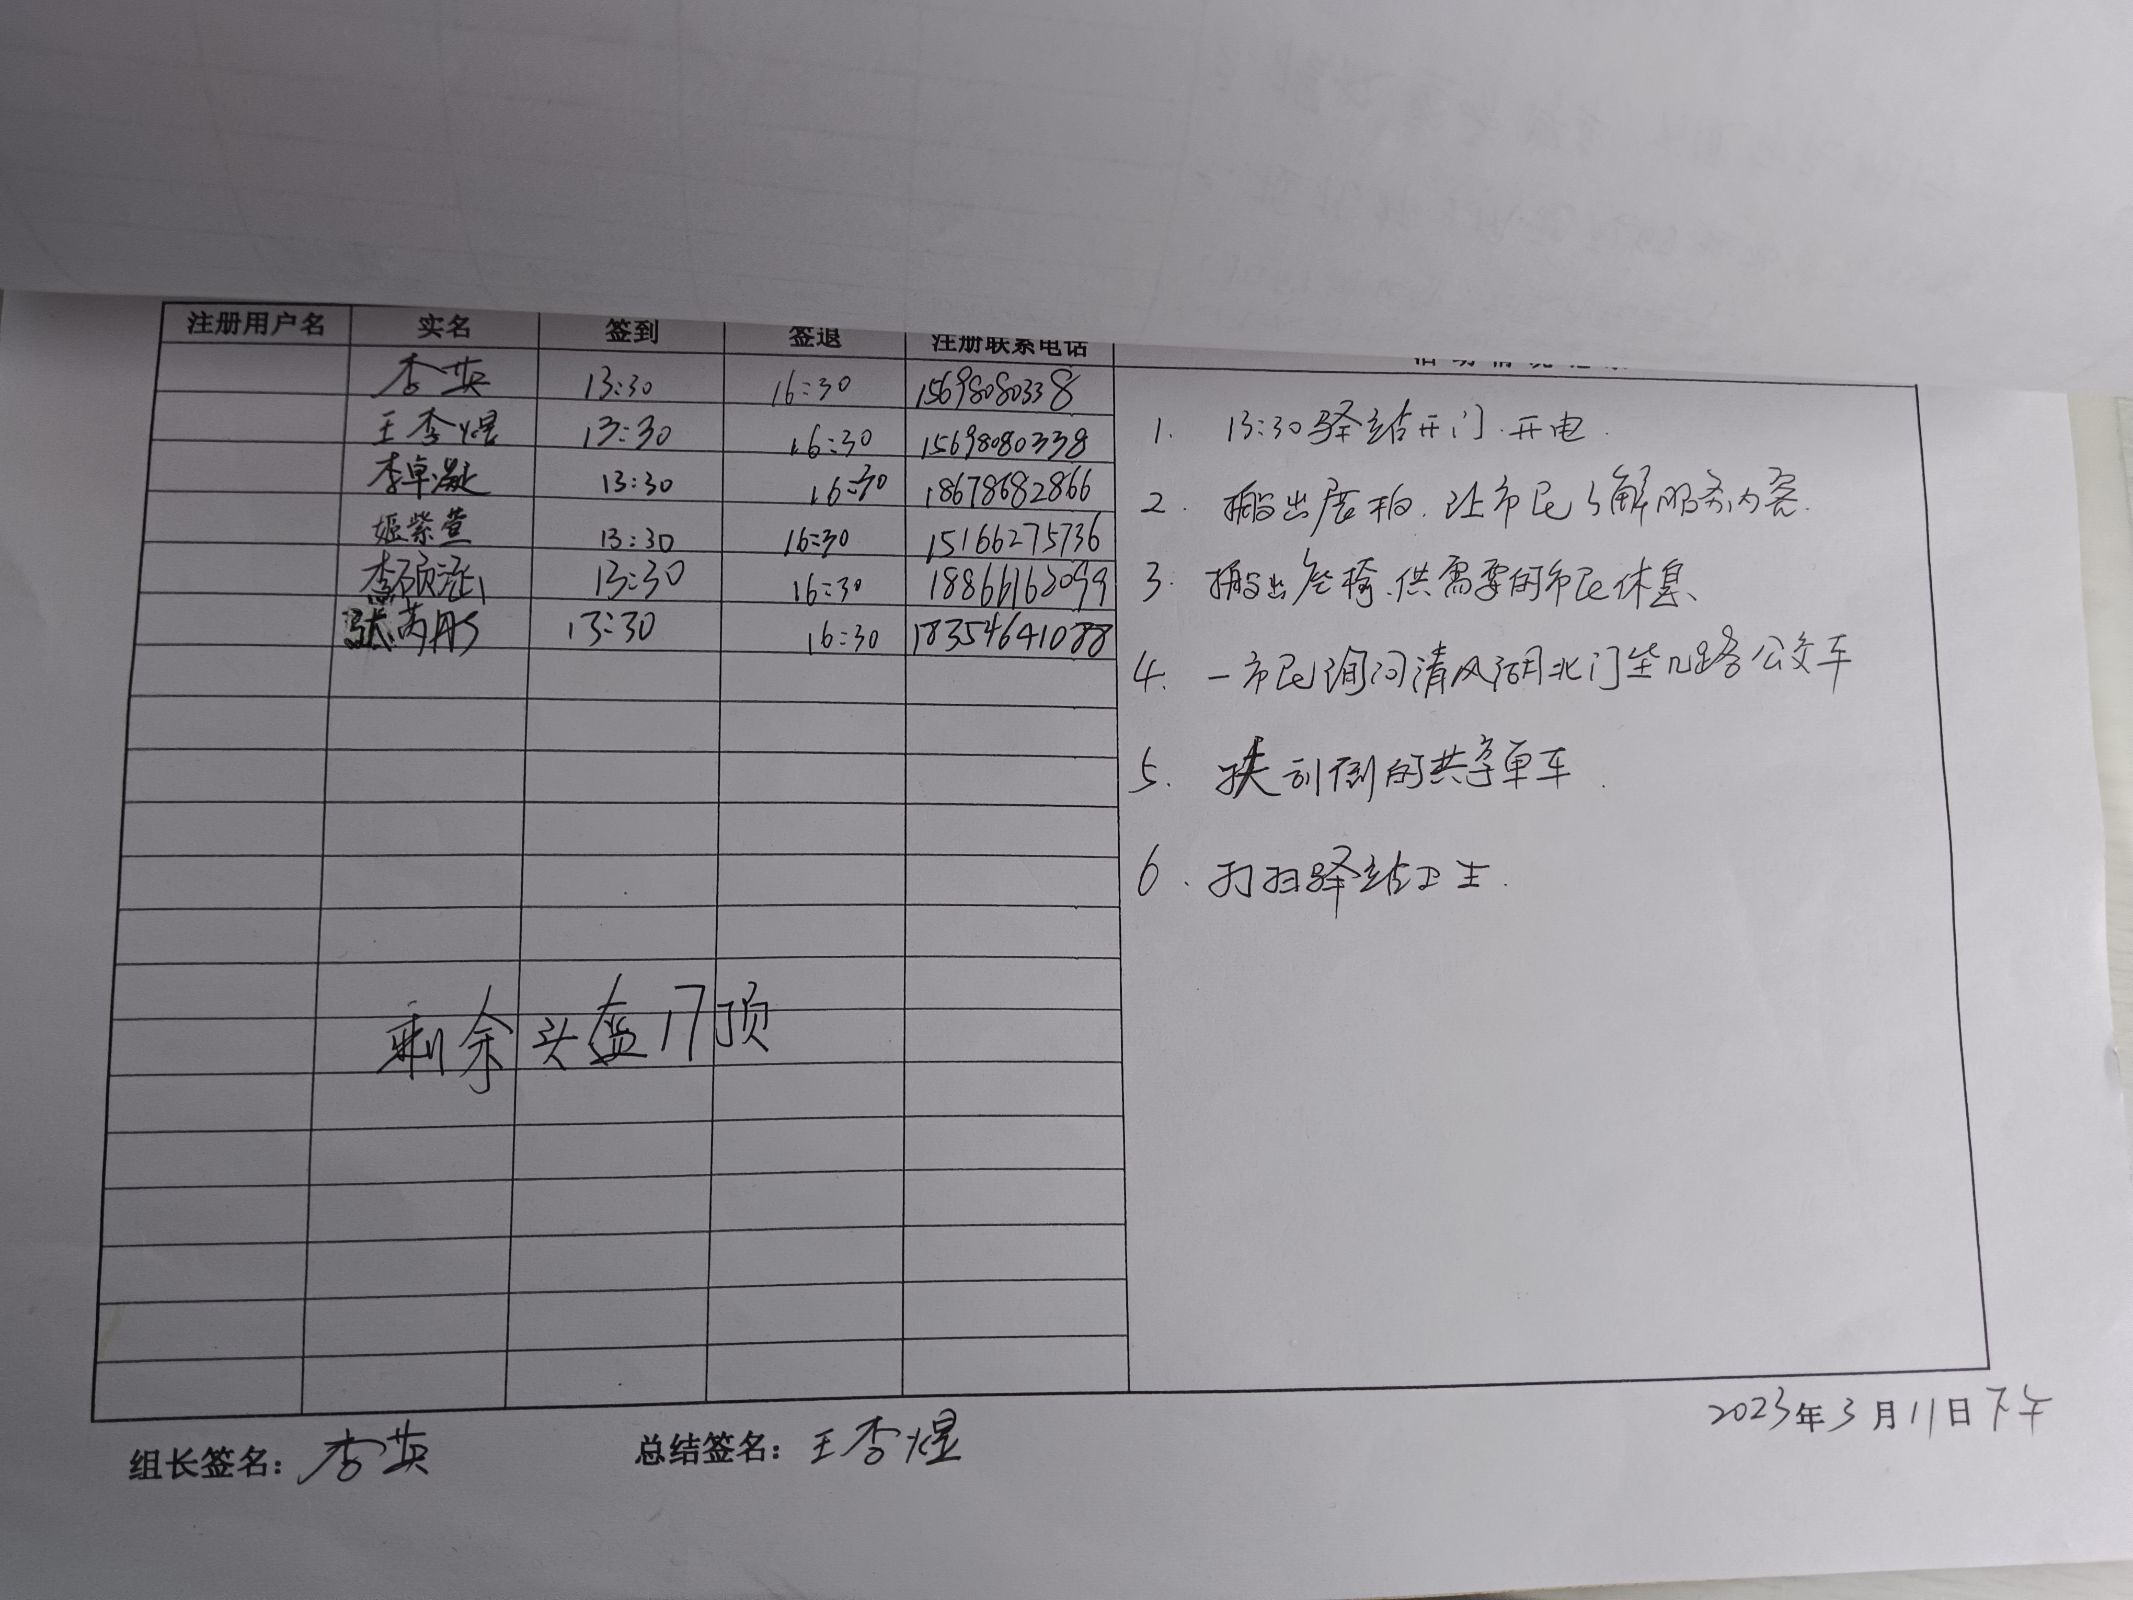 注册用户名 实名 签到 签退 注册联系电话 活动情况记录
李英 13:30 16:30 15698080338
王李煜 13:30 16:30 15698080338
李卓凝 13:30 16:30 18678682866
姬紫萱 13:30 16:30 15166275736
李硕 13:30 16:30 18866163099
张芮彤 13:30 16:30 18354641088
剩余头盔17顶
1. 13:30驿站开门.开电.
2. 搬出展柏.让市民了解服务内容.
3. 搬出座椅.供需要的市民休息、
4. 一市民询问清风湖北门坐几路公交车
5. 扶刮倒的共享单车.
6. 打扫驿站卫生.
2023年3月11日下午
组长签名：李英 总结签名：王李煜